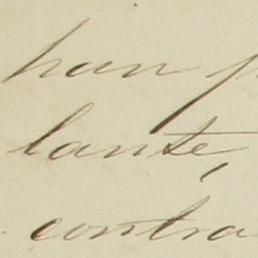 han p
lante,
contra